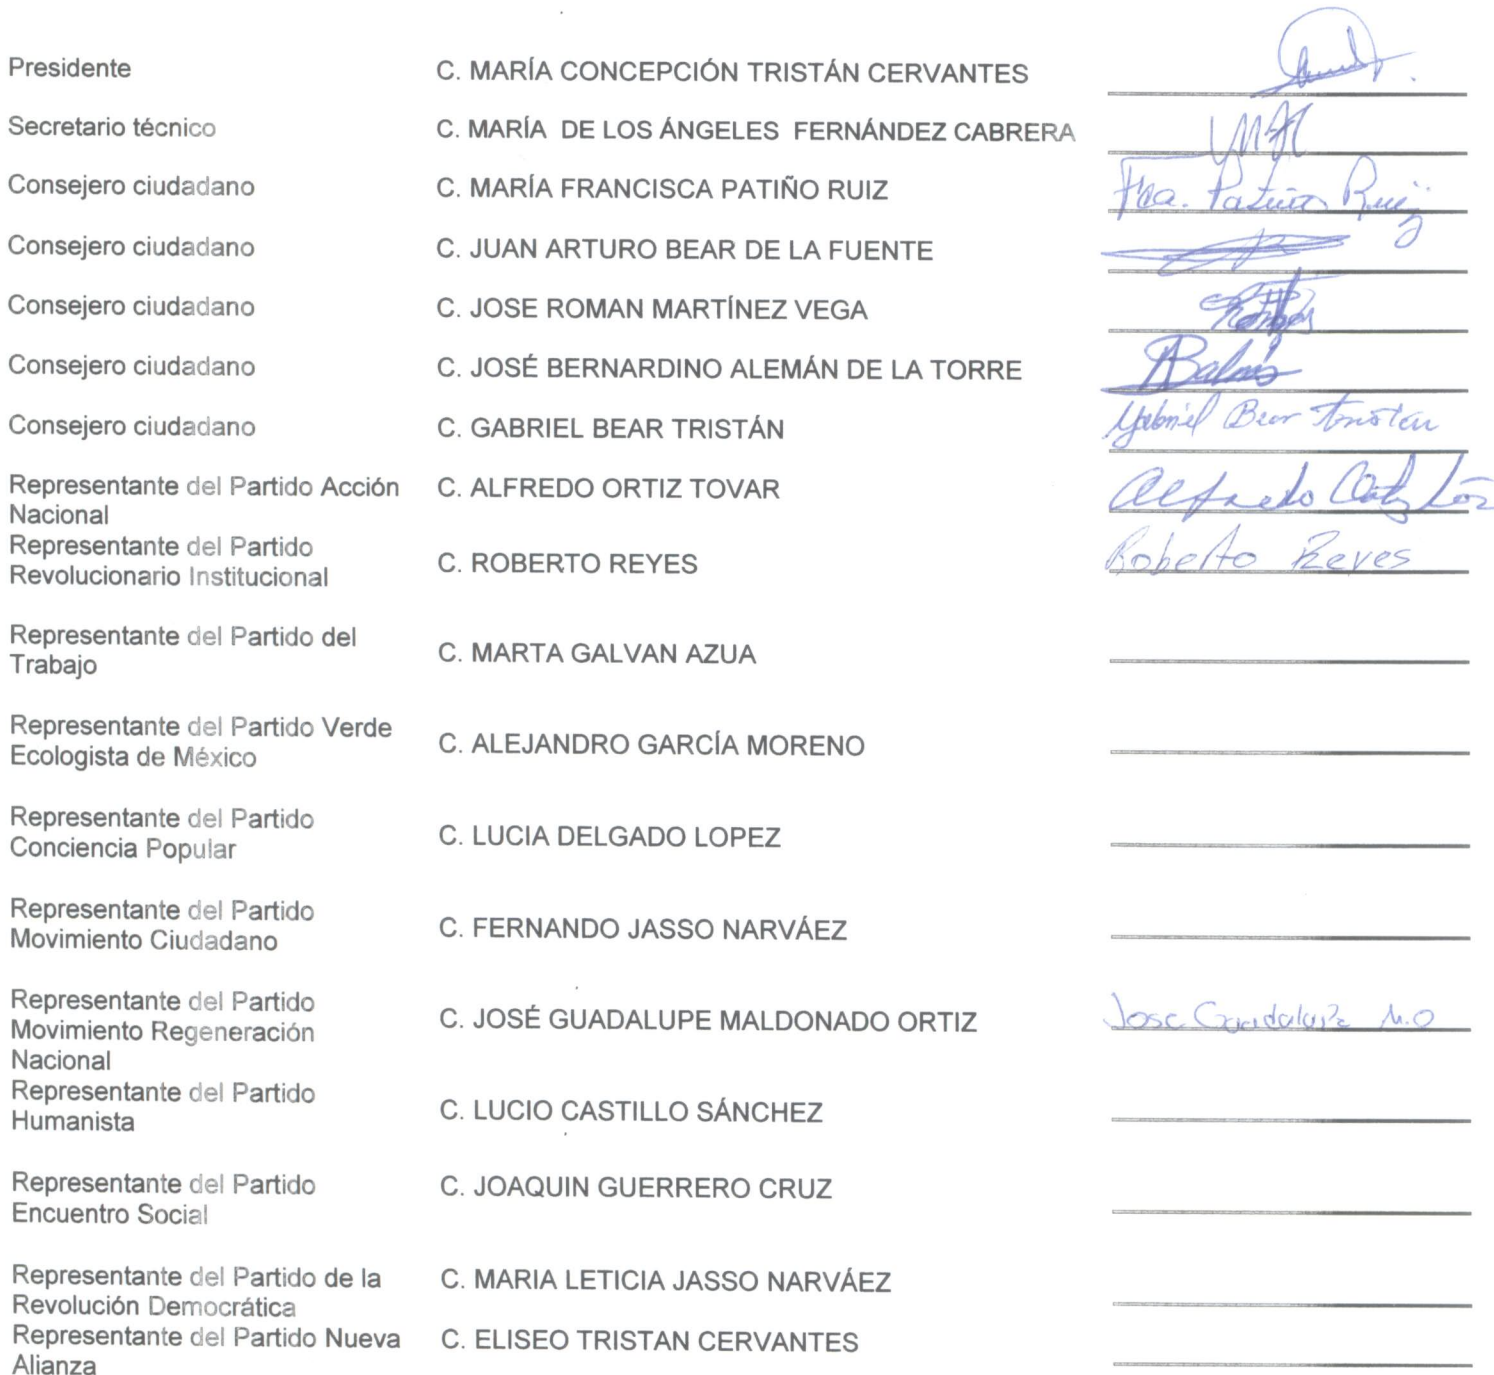 Presidente C. MARÍA CONCEPCIÓN TRISTÁN CERVANTES
Secretario técnico C. MARÍA DE LOS ÁNGELES FERNÁNDEZ CABRERA
Consejero ciudadano C. MARÍA FRANCISCA PATIÑO RUIZ Fca. Patiño Ruiz
Consejero ciudadano C. JUAN ARTURO BEAR DE LA FUENTE
Consejero ciudadano C. JOSE ROMAN MARTÍNEZ VEGA
Consejero ciudadano C. JOSÉ BERNARDINO ALEMÁN DE LA TORRE
Consejero ciudadano C. GABRIEL BEAR TRISTÁN Gabriel Bear Tristan
Representante del Partido Acción C. ALFREDO ORTIZ TOVAR Alfredo Ortiz
Nacional
Representante del Partido
Revolucionario Institucional C. ROBERTO REYES Roberto Reyes
Representante del Partido del
Trabajo C. MARTA GALVAN AZUA
Representante del Partido Verde
Ecologista de México C. ALEJANDRO GARCÍA MORENO
Representante del Partido
Conciencia Popular C. LUCIA DELGADO LOPEZ
Representante del Partido
Movimiento Ciudadano C. FERNANDO JASSO NARVÁEZ
Representante del Partido
Movimiento Regeneración C. JOSÉ GUADALUPE MALDONADO ORTIZ Jose Guadalupe M.O
Nacional
Representante del Partido
Humanista C. LUCIO CASTILLO SÁNCHEZ
Representante del Partido C. JOAQUIN GUERRERO CRUZ
Encuentro Social
Representante del Partido de la C. MARIA LETICIA JASSO NARVÁEZ
Revolución Democrática
Representante del Partido Nueva C. ELISEO TRISTAN CERVANTES
Alianza